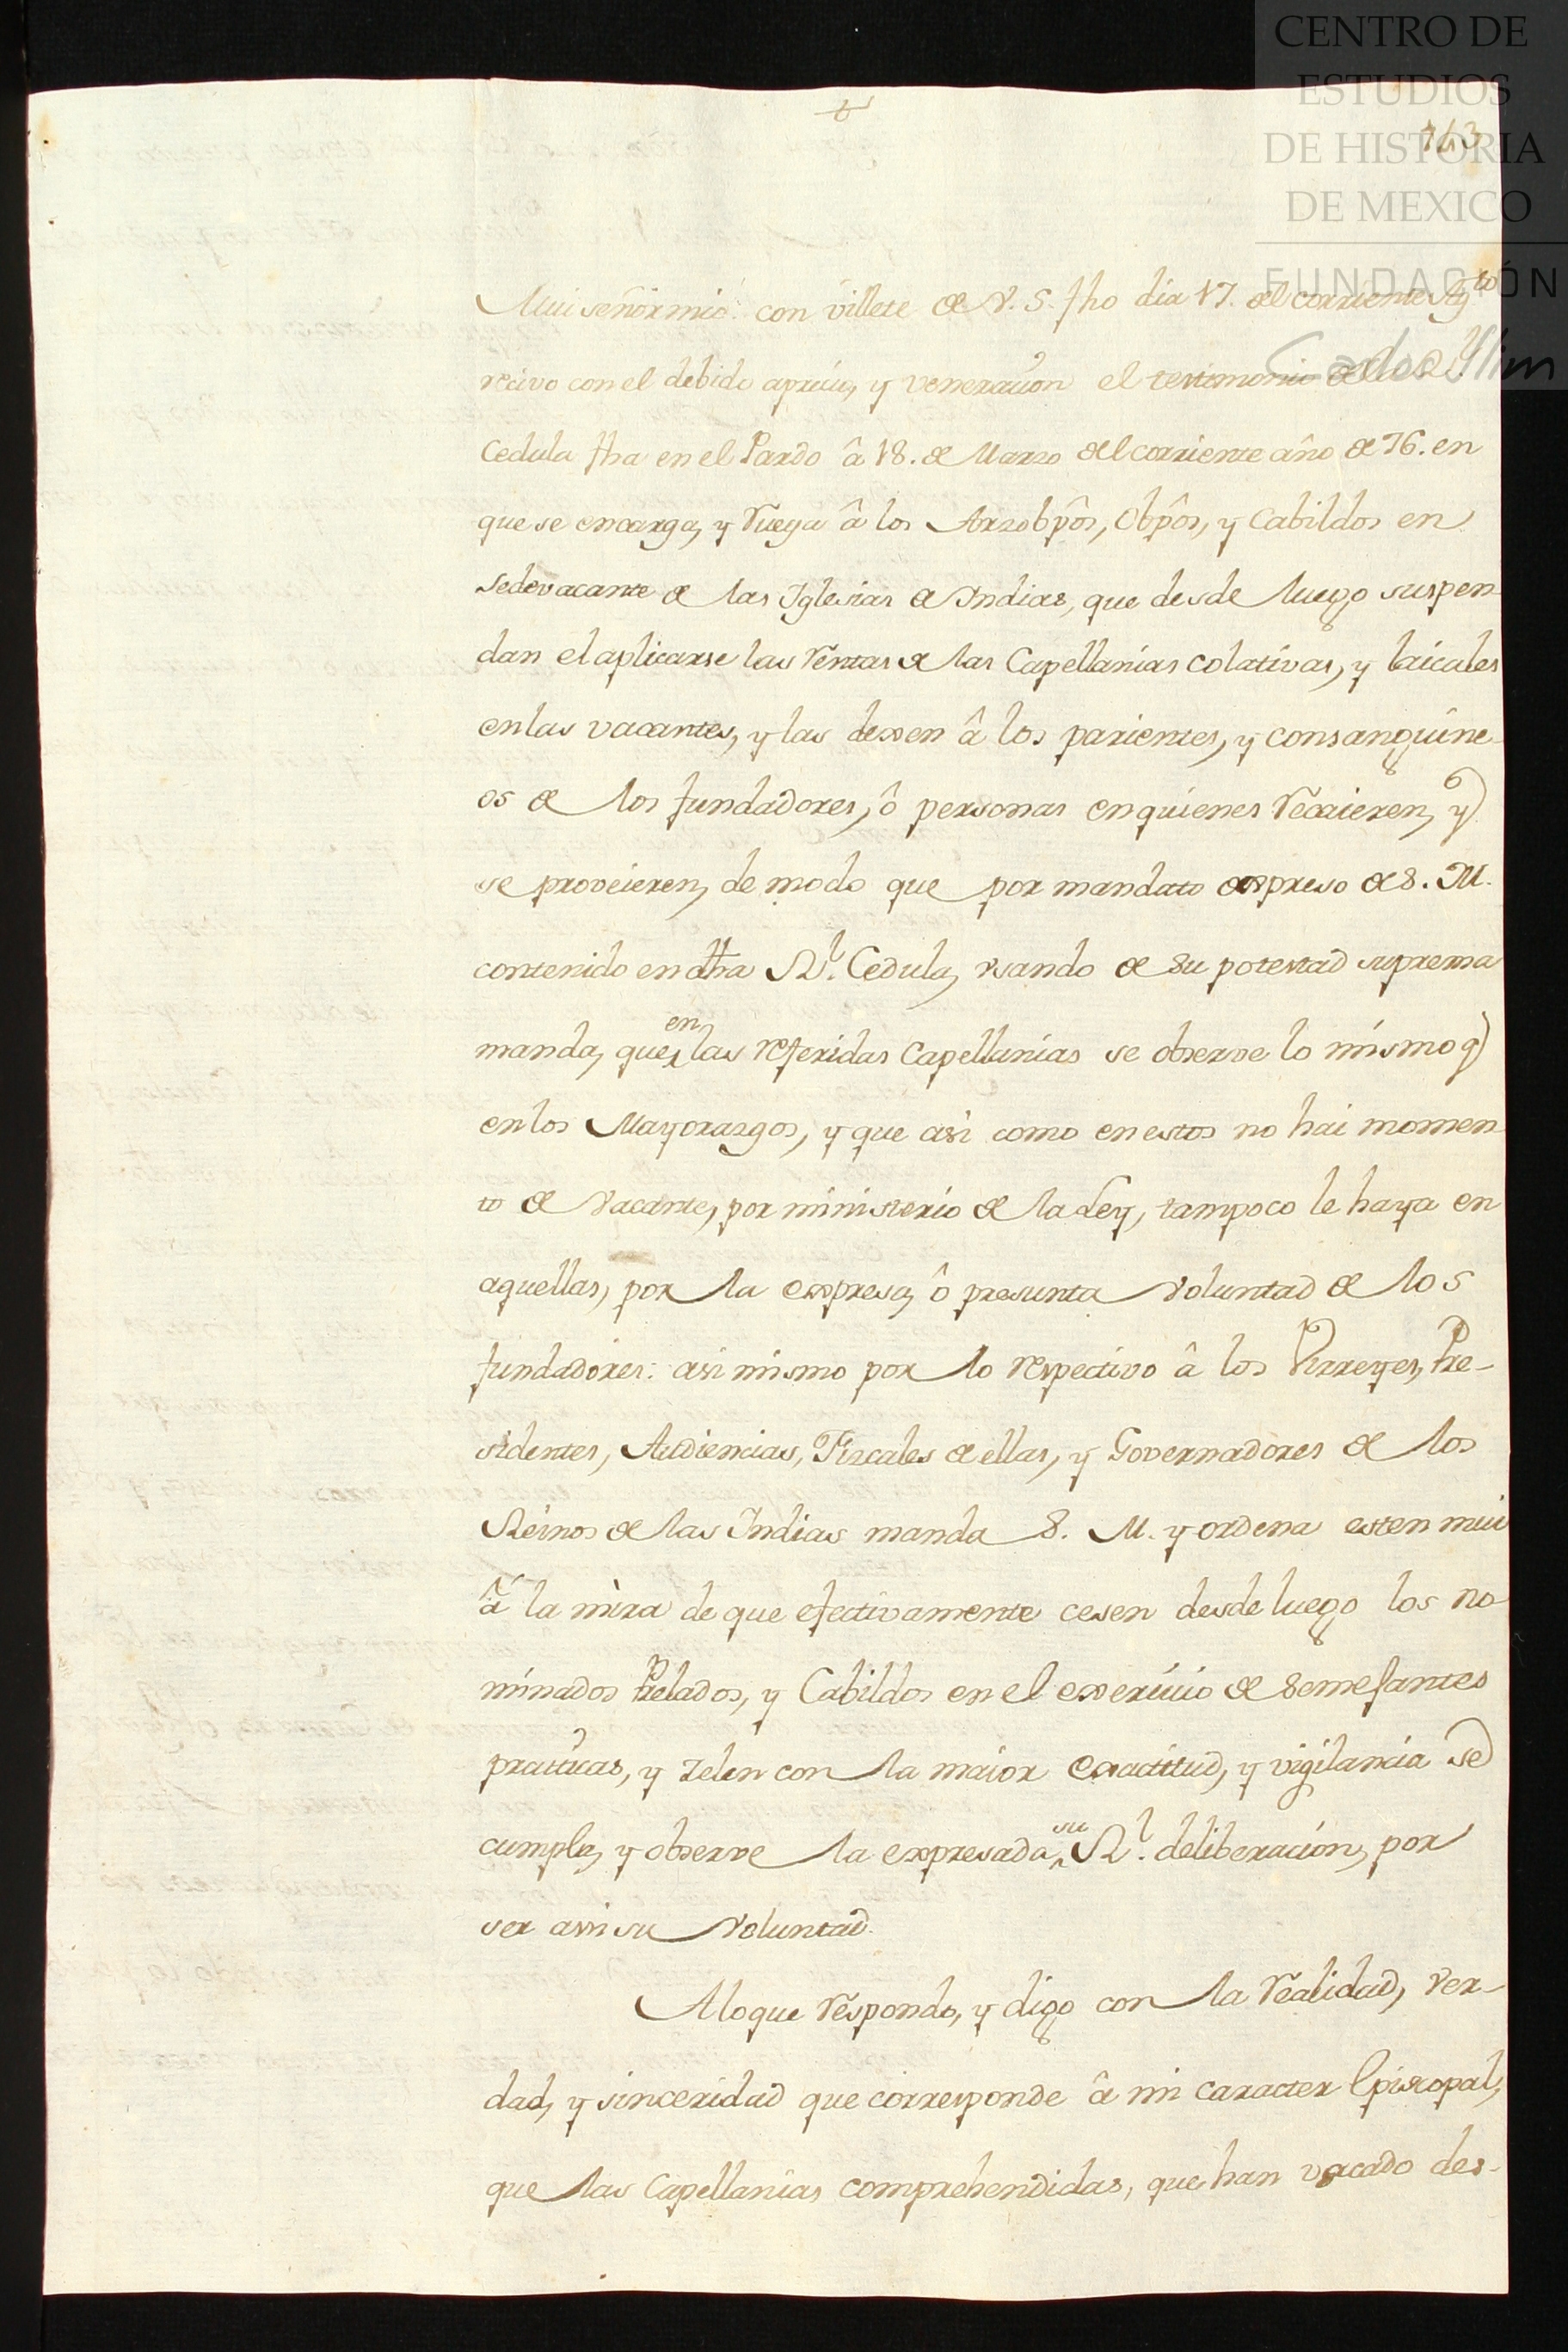 CENTRO DE
ESTUDIOS
DE HISTORIA
DE MEXICO
FUNDACIÓN
Carlos Slim
143
Mui señor mio: con villete de V. S. fho dia 17. del corriente Agto
recivo con el debido aprecio, y veneracion el testimonio de la Rl.
Cedula fha en el Pardo â 18. de Marzo del corriente año de 76. en
que se encarga, y ruega â los Arzobpôs, Obpôs, y Cabildos en
sedevacante de las Iglesias de Indias, que desde luego suspen
dan el aplicarse las rentas de las Capellanias colativas, y laicales
en las vacantes, y las dexen â los parientes, y consanguine
os de los fundadores, ô personas en quienes recaieren, y
se proveieren, de modo que por mandato expreso de S. M.
contenido en dha Rl. Cedula, usando de su potestad suprema
manda, que en las referidas Capellanias se observe lo mismo q
en los Mayorazgos, y que asi como en estos no hai momen
to de vacante, por ministerio de la Ley, tampoco le haya en
aquellas, por la expresa, ô presunta voluntad de los
fundadores: asi mismo por lo respectivo â los Virreyes, Pre-
sidentes, Audiencias, Fiscales de ellas, y Governadores de los
Reinos de las Indias manda S. M. y ordena esten mui
â la mira de que efectivamente cesen desde luego los no
minados Prelados, y Cabildos en el exercicio de semejantes
practicas, y zelen con la maior exactitud, y vigilancia se
cumpla, y observe la expresada su Rl. deliberacion, por
ser assi su voluntad.
A lo que respondo, y digo con la realidad, ver-
dad, y sinceridad que corresponde â mi caracter Episcopal,
que las Capellanias comprehendidas, que han vacado des-